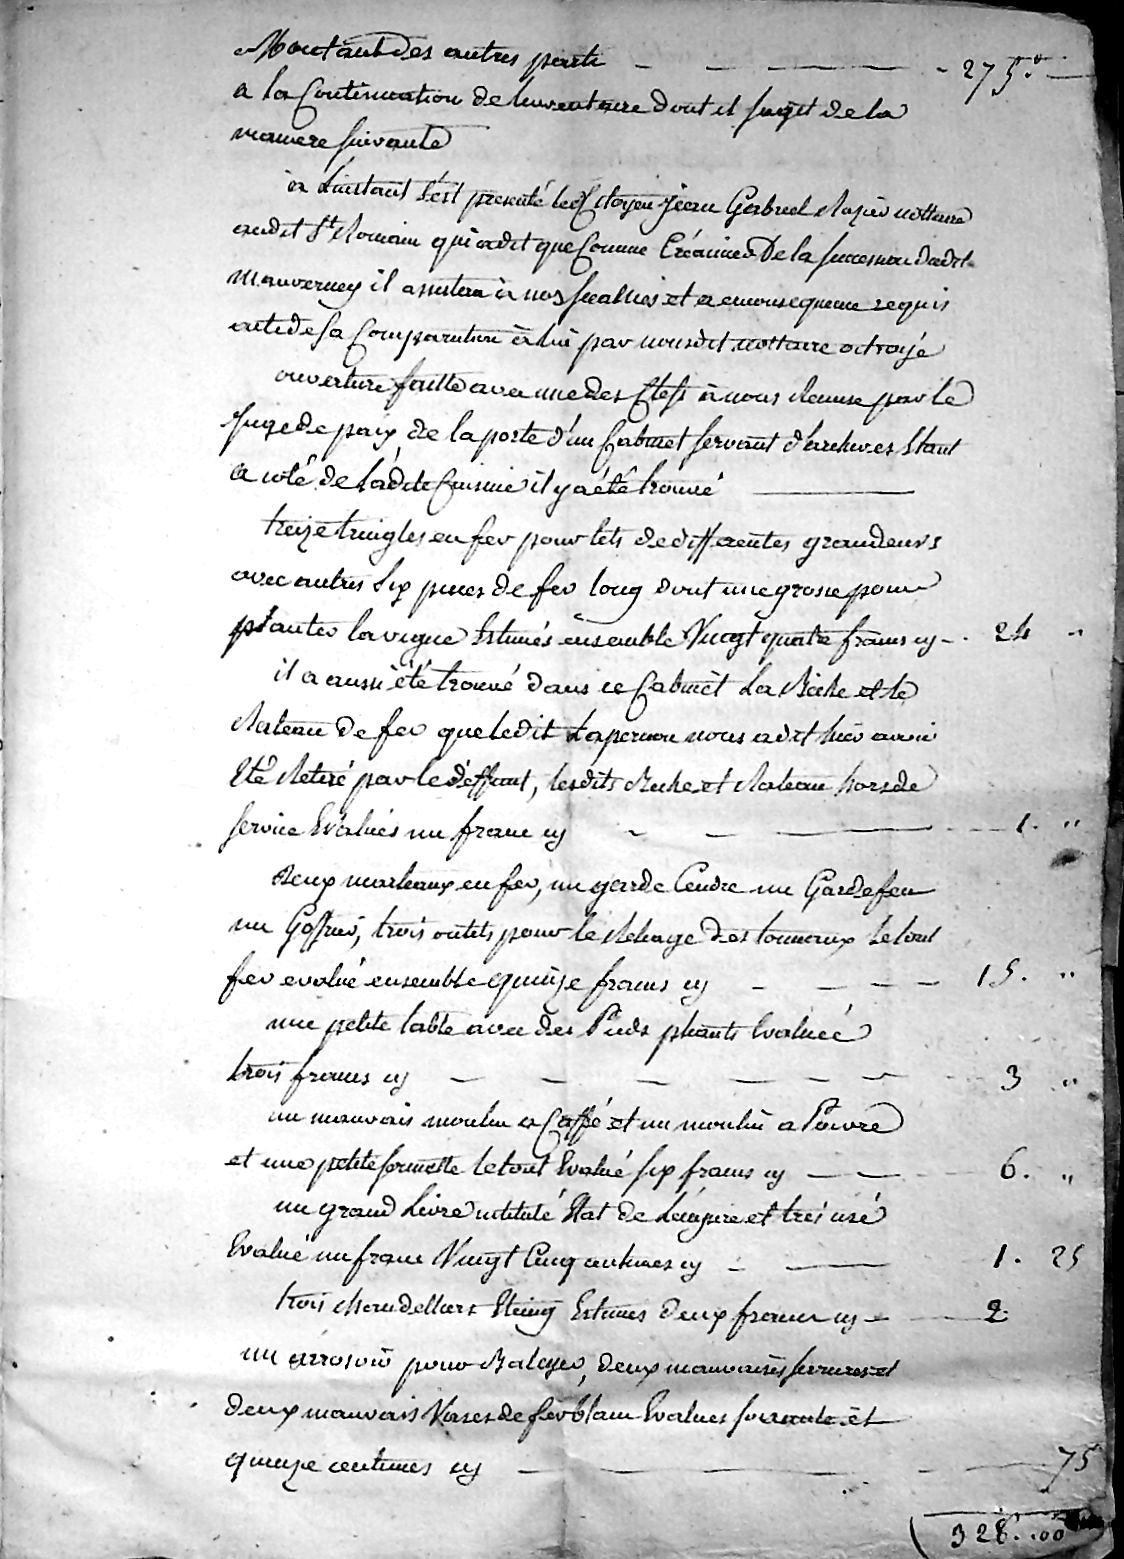 Montant des autres parts — — — - 275."
a la Continuation de linventaire dont il sagit de la
maniere suivante
a Linstant s'est presenté le Citoyen jean Gabriel Mazier nottaire
audit St Romain qui adit que Comme Créancier De la succession dudit
Mauverney il assistera à nos seances et a enconsequence requis
acte de sa Comparution à lui par nousdit nottaire octroyé
ouverture faitte avec une des Clefs à nous Remise par le
juge de paix de la porte d'un Cabinet servant d'archives Etant
a coté de ladite Cuisine il y a été trouvé ———
treize tringles en fer pour lits de differentes grandeurs
avec autres six pieces de fer long dont une grosse pour
planter la vigne Estimés ensemble Vingt quatre francs cy - . 24 "
il a aussi été trouvé dans ce Cabinet La Beche et le
Rateau de fer que ledit Laperson nous a dit hier avoir
Eté Retiré par le deffunt, lesdits Beche et Rateau hors de
service Evalués un franc cy - — — 1. "
Deux marteaux en fer, un garde Cendre un Gardefeu
un Goffrier, trois outils pour le Reliage des tonneaux le tout
fer evalué ensemble quinze francs cy - — — 15. "
une petite table avec des Pieds pliants Evaluée
trois francs cy — — — — — 3 "
un mauvais moulin a Caffé et un moulin a Poivre
et une petite sonnette le tout Evalué six francs cy — — 6. "
un grand Livre intitulé Etat de Lempire et tres usé
Evalué un franc Vingt Cinq centimes cy - — 1. 25
trois chandelliers Etaing Estimés deux francs cy — 2.
un arrosoir pour Balayer, deux mauvaises serrures et
deux mauvais Vases de fer blanc Evalués soixante et
quinze centimes cy ——— 75
328. .00